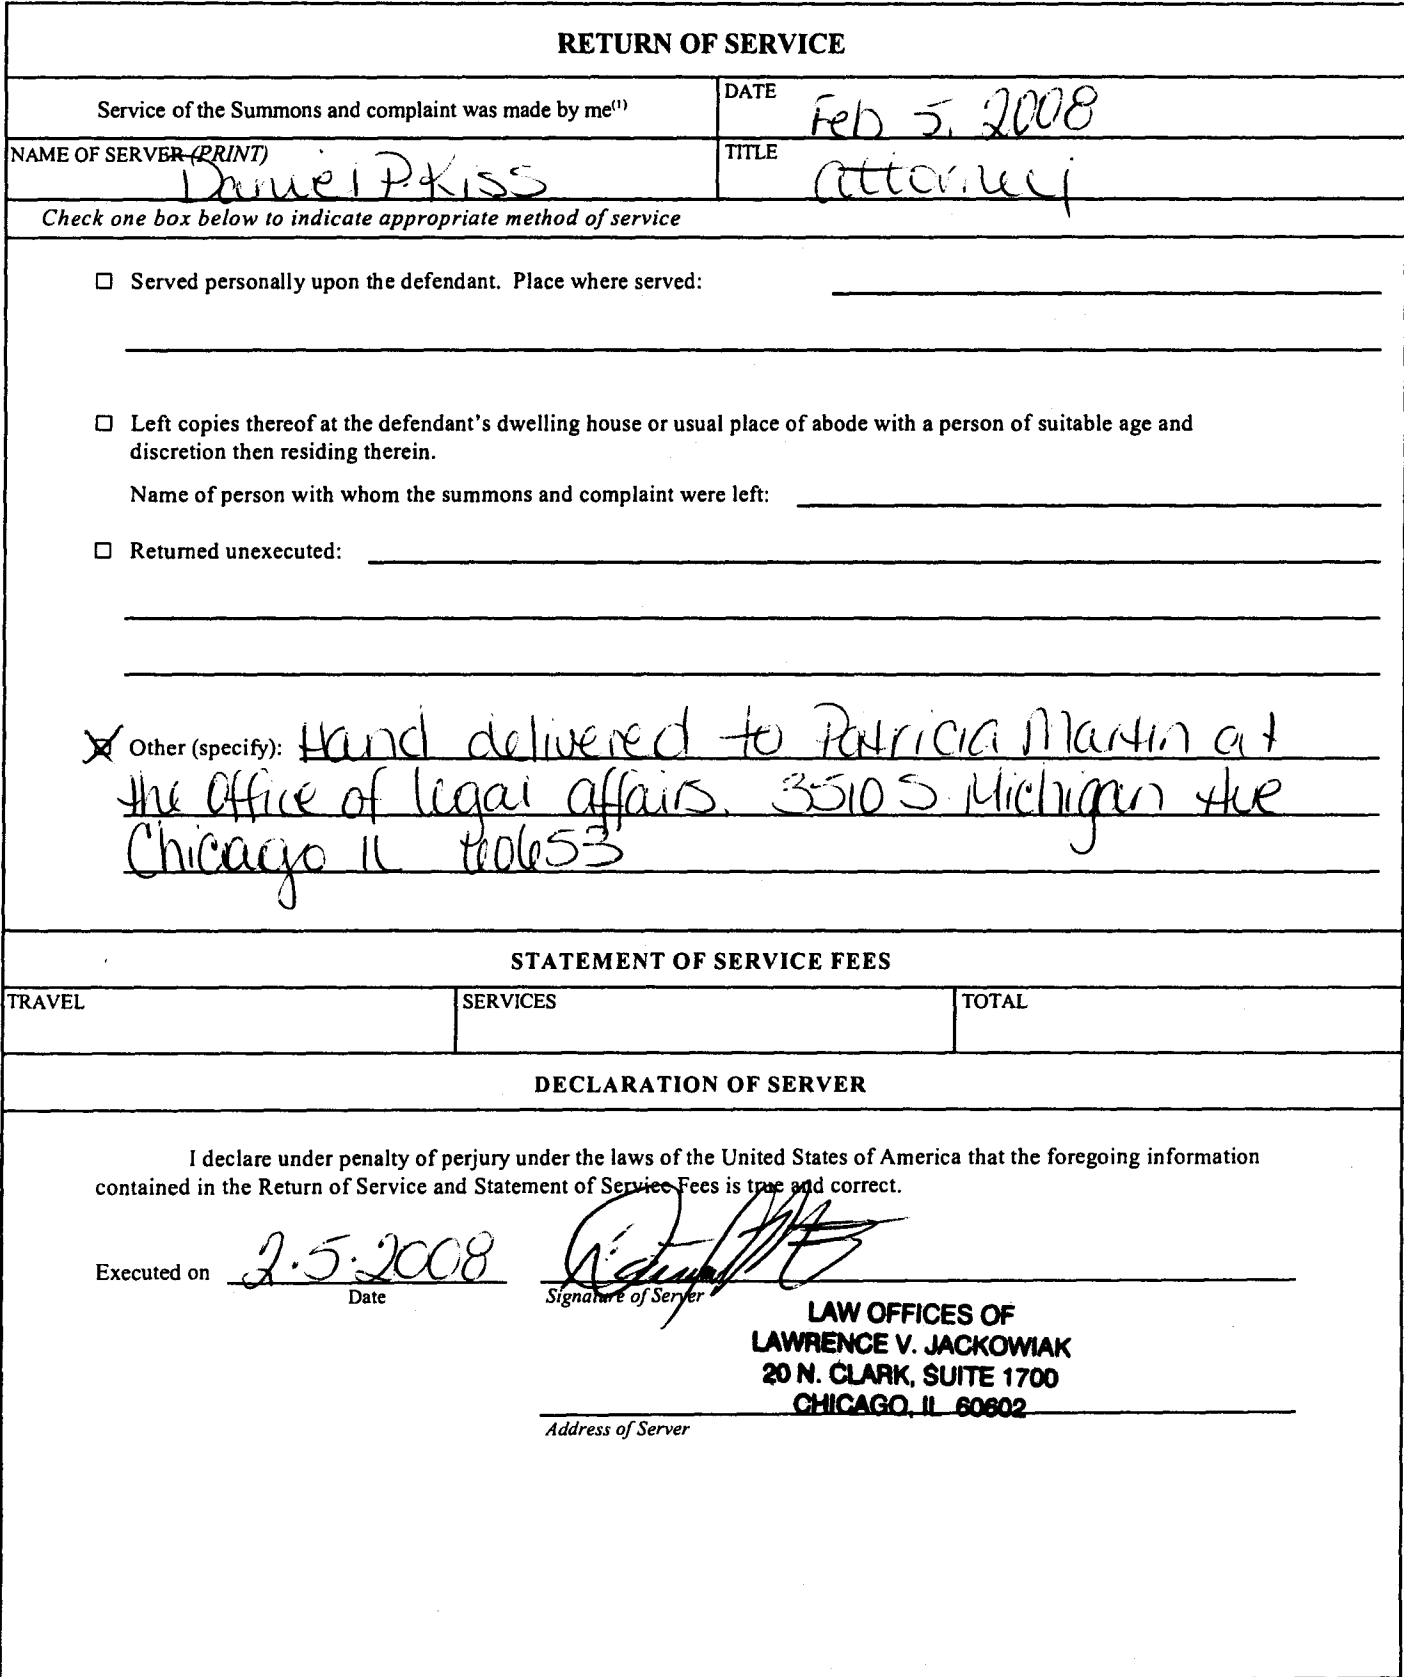 RETURN OF SERVICE
Service of the Summons and complaint was made by me(1)
DATE
Feb 5, 2008
NAME OF SERVER (PRINT)
Daniel P. Kiss
TITLE
Attorney
Check one box below to indicate appropriate method of service
☐ Served personally upon the defendant. Place where served:
☐ Left copies thereof at the defendant's dwelling house or usual place of abode with a person of suitable age and
discretion then residing therein.
Name of person with whom the summons and complaint were left:
☐ Returned unexecuted:
☒ Other (specify): Hand delivered to Patricia Martin at
the Office of legal affairs. 3510 S. Michigan Ave
Chicago IL 60653
STATEMENT OF SERVICE FEES
TRAVEL
SERVICES
TOTAL
DECLARATION OF SERVER
I declare under penalty of perjury under the laws of the United States of America that the foregoing information
contained in the Return of Service and Statement of Service Fees is true and correct.
Executed on 2.5.2008
Date
Signature of Server
LAW OFFICES OF
LAWRENCE V. JACKOWIAK
20 N. CLARK, SUITE 1700
CHICAGO, IL 60602
Address of Server